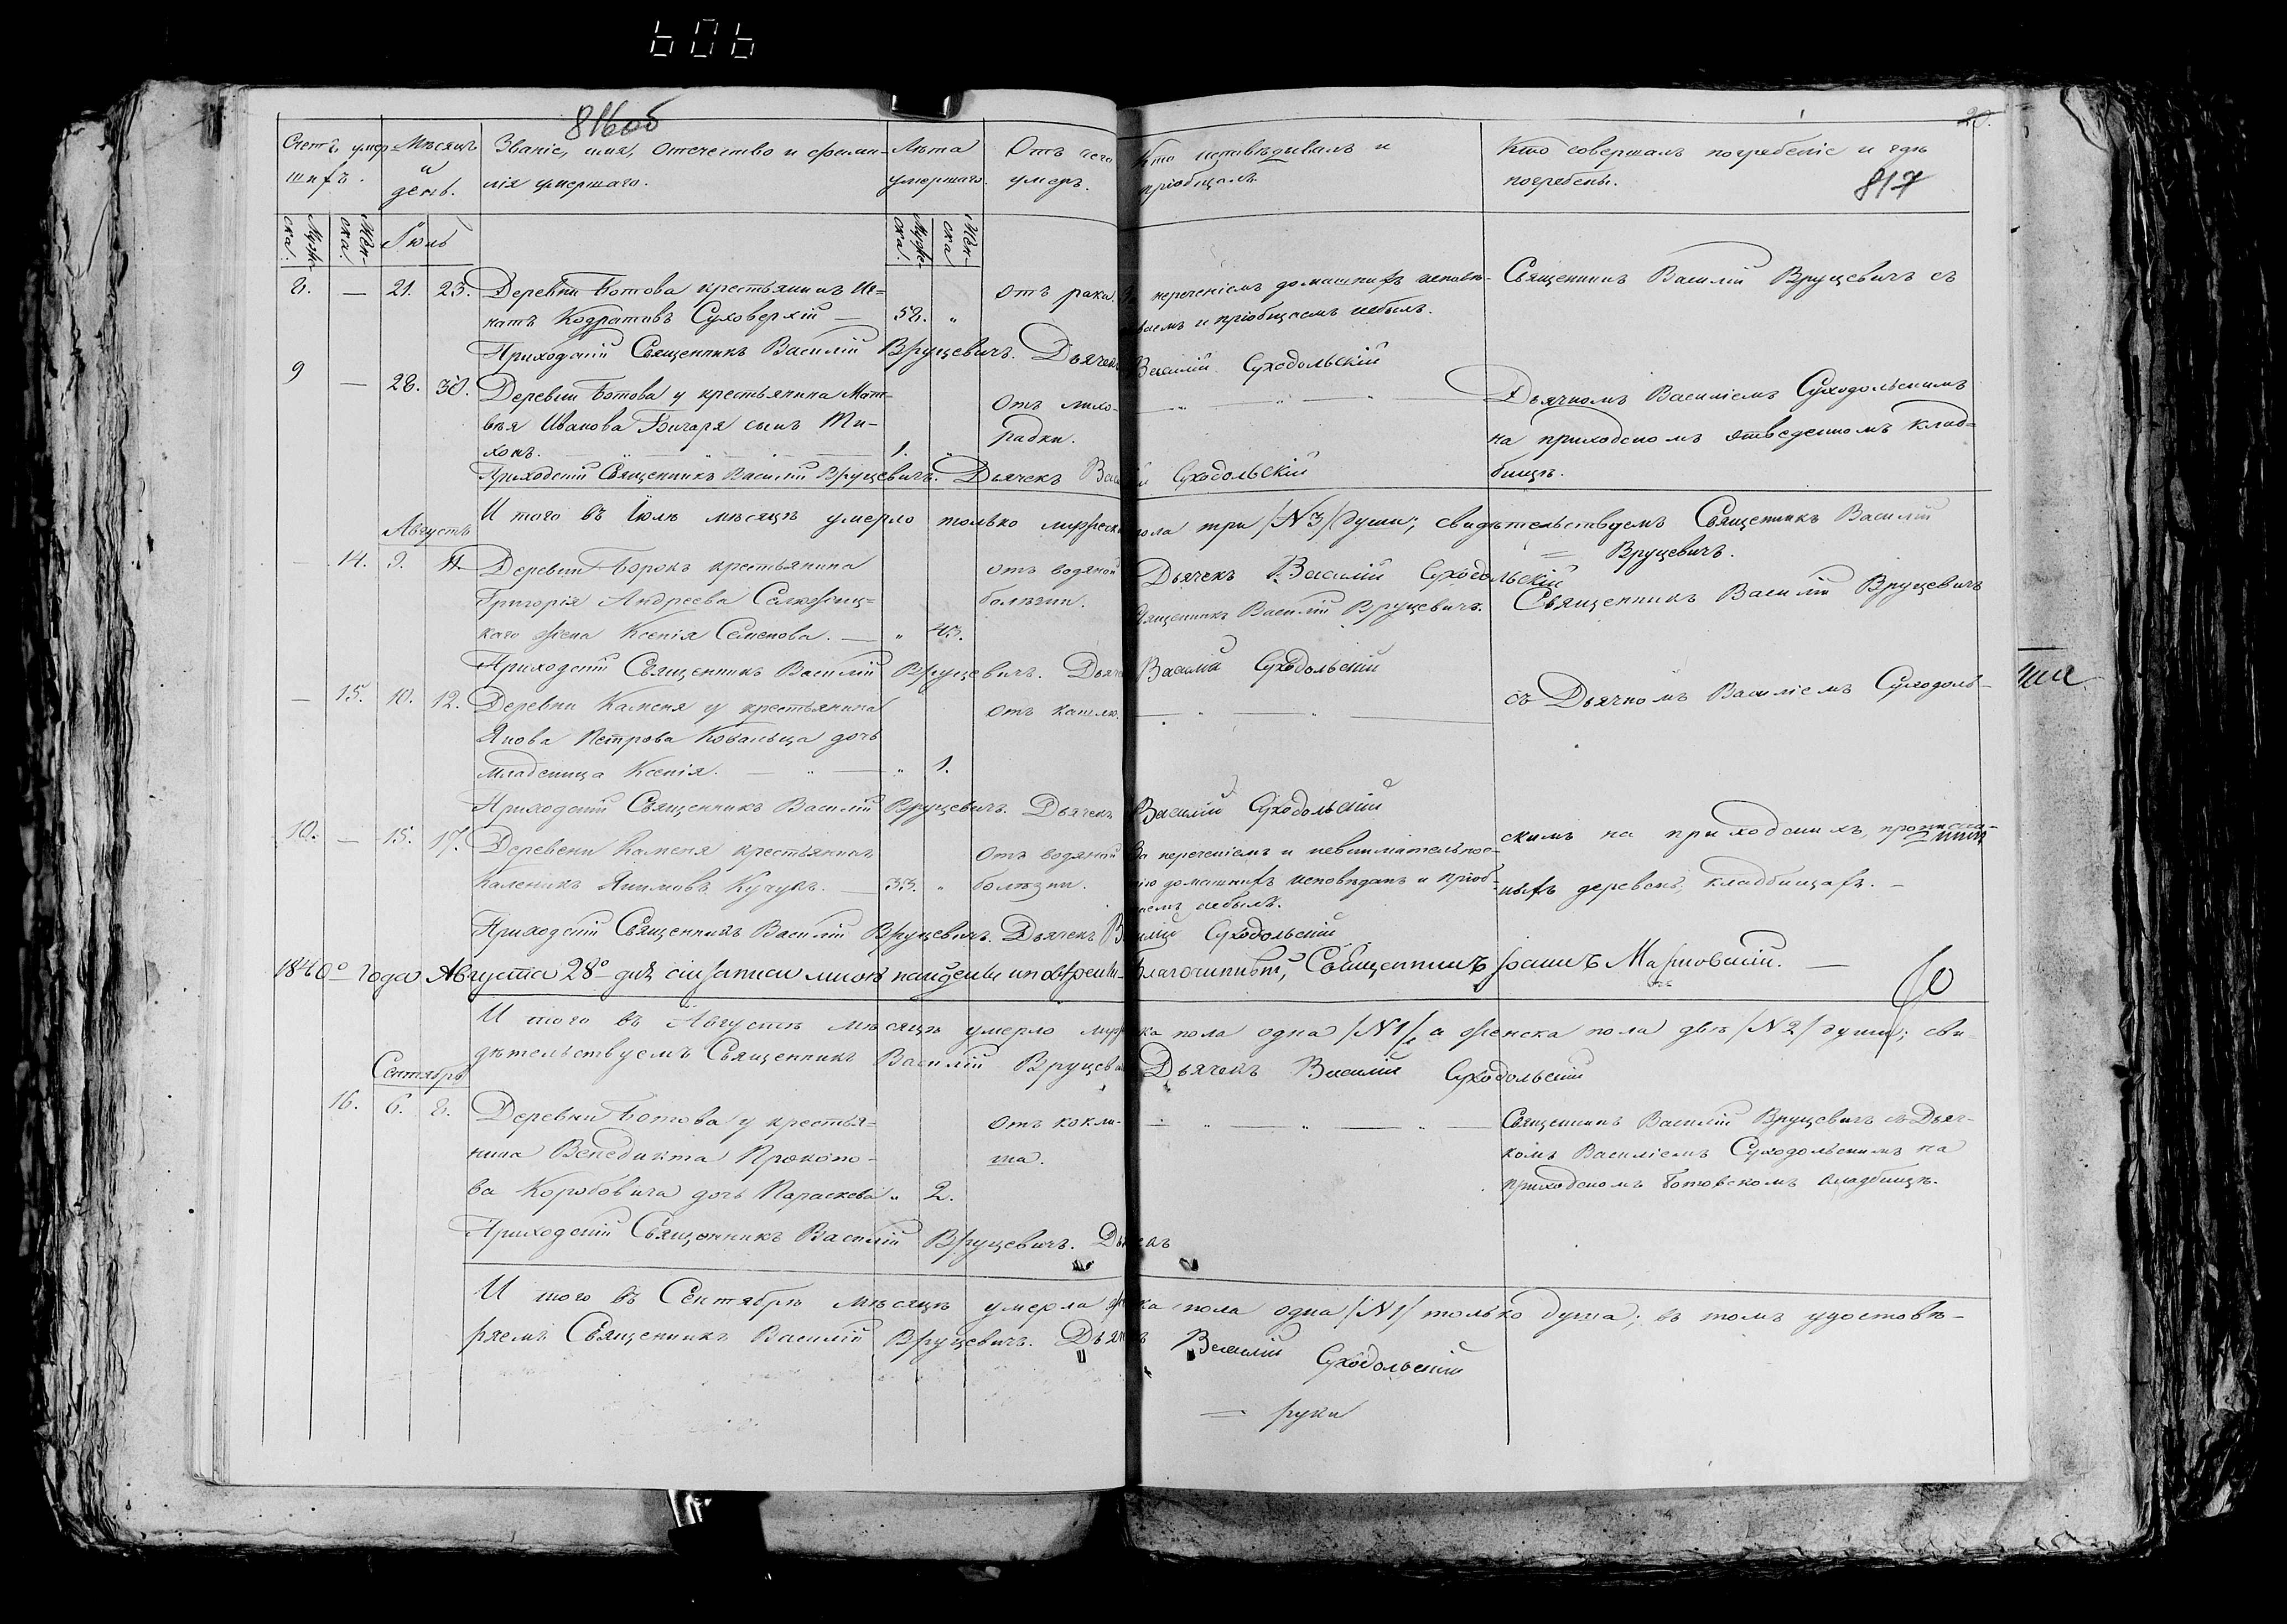 606
816об
20.
817
Счетъ умер-
шихъ.
Мѣсяцъ
и
день.
Званіе, имя, отечество и фами-
лія умершаго.
Лѣта
умершаго.
Отъ чего
умеръ.
Кто исповѣдывалъ и
пріобщалъ.
Кто совершалъ погребеніе и гдѣ
погребены.
Муже-
ска.
Жен-
ска.
Іюль
Муже-
ска.
Жен-
ска
8. — 21. 23. Деревни Ботова крестьянинъ Иг=
натъ Кодратовъ Суховерхій — 58. „
Отъ рака.
неречениемъ домашнихъ исповѣ-
даемъ и пріобщаемъ небылъ.
Священникъ Василій Вруцевичъ съ
Приходскій Священникъ Василій Вруцевичъ. Дьячекъ Василій Суходольскій
9 — 28. 30. Деревни Ботова у крестьянина Мат-
вѣя Иванова Бичаря сынъ Ти-
хонъ. 1. „
Отъ лихо-
радки.
Дьячкомъ Василіемъ Суходольскимъ
на приходскомъ отведенномъ клад=
бищѣ.
Приходскій Священникъ Василій Вруцевичъ. Дьячекъ Василій Суходольскій
И того въ Іюлѣ мѣсяцѣ умерло только мужеска пола три /№3/ души; свидѣтельствуемъ Священникъ Василій
= Вруцевичъ.
Дьячекъ Василій Суходольскій
Августъ
14. 9. 11. Деревни Борокъ крестьянина
Григорія Андреева
каго жена Ксенія Семенова. — „ 43.
отъ водяной
болѣзни.
Священникъ Василій Вруцевичъ.
Священникъ Василій Вруцевичъ
Приходскій Священникъ Василій Вруцевичъ. Дьячекъ Василій Суходольскій
— 15. 10. 12. Деревни Каменя у крестьянина
Якова Петрова Ковальца дочь
младеница Ксенія. — „ — „ 1.
отъ кашлю.
съ Дьячкомъ Василіемъ Суходоль-
Приходскій Священникъ Василій Вруцевичъ. Дьячекъ Василій Суходольскій
10. — 15. 17. Деревени Каменя крестьянинъ
Каленикъ Якимовъ Кучукъ. — 33. „
Отъ водяной
болѣзни.
За неречениемъ и невнимательнос-
тію домашнихъ исповѣданъ и пріоб-
щаемъ небылъ.
скимъ на приходскихъ,
ныхъ деревень, кладбищахъ. —
Приходскій Священникъ Василій Вруцевичъ. Дьячекъ Василій Суходольскій
1840го года Августа 28го дня сіи записи мною найдены Благочинный, Священникъ
И того въ Августѣ мѣсяцѣ умерло мужеска пола одна /№1/, а женска пола двѣ /№2/ души; сви-
дѣтельствуемъ Священникъ Василій Вруцевичъ Дьячекъ Василій Суходольскій
Сентябрь
16. 6. 8. Деревни Ботова у крестья-
нина Венедикта Прокопо-
ва Коробовича дочь Параскева „ 2.
Отъ коклю-
ша.
Священникъ Василій Вруцевичъ съ Дьяч-
комъ Василіемъ Суходольскимъ на
приходскомъ Ботовскомъ кладбищѣ.
Приходскій Священникъ Василій Вруцевичъ. Дьячекъ
И того въ Сентябрѣ мѣсяцѣ умерла женска пола одна /№1/ только душа; въ томъ удостовѣ-
ряемъ Священникъ Василій Вруцевичъ. Дьячекъ Василій Суходольскій
= руки